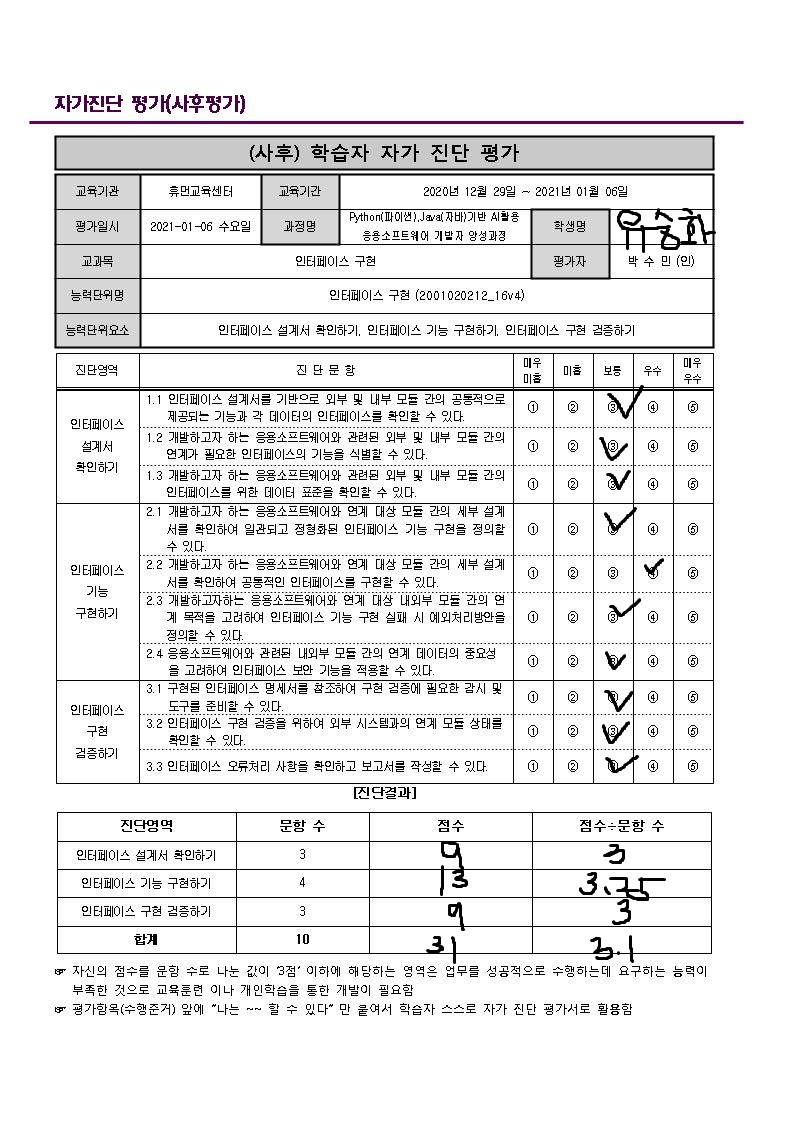 자가진단 평가(사후평가)
(사후) 학습자 자가 진단 평가
교육기관 휴먼교육센터 교육기간 2020년 12월 29일 ~ 2021년 01월 06일
평가일시 2021-01-06 수요일 과정명 Python(파이썬),Java(자바)기반 AI활용 응용소프트웨어 개발자 양성과정 학생명 유승화
교과목 인터페이스 구현 평가자 박 수 민 (인)
능력단위명 인터페이스 구현 (2001020212_16v4)
능력단위요소 인터페이스 설계서 확인하기, 인터페이스 기능 구현하기, 인터페이스 구현 검증하기
진단영역 진 단 문 항 매우 미흡 미흡 보통 우수 매우 우수
인터페이스 설계서 확인하기
1.1 인터페이스 설계서를 기반으로 외부 및 내부 모듈 간의 공통적으로
제공되는 기능과 각 데이터의 인터페이스를 확인할 수 있다. ① ② ③ ④ ⑤
1.2 개발하고자 하는 응용소프트웨어와 관련된 외부 및 내부 모듈 간의
연계가 필요한 인터페이스의 기능을 식별할 수 있다. ① ② ③ ④ ⑤
1.3 개발하고자 하는 응용소프트웨어와 관련된 외부 및 내부 모듈 간의
인터페이스를 위한 데이터 표준을 확인할 수 있다. ① ② ③ ④ ⑤
인터페이스 기능 구현하기
2.1 개발하고자 하는 응용소프트웨어와 연계 대상 모듈 간의 세부 설계
서를 확인하여 일관되고 정형화된 인터페이스 기능 구현을 정의할
수 있다. ① ② ③ ④ ⑤
2.2 개발하고자 하는 응용소프트웨어와 연계 대상 모듈 간의 세부 설계
서를 확인하여 공통적인 인터페이스를 구현할 수 있다. ① ② ③ ④ ⑤
2.3 개발하고자하는 응용소프트웨어와 연계 대상 내외부 모듈 간의 연
계 목적을 고려하여 인터페이스 기능 구현 실패 시 예외처리방안을
정의할 수 있다. ① ② ③ ④ ⑤
2.4 응용소프트웨어와 관련된 내외부 모듈 간의 연계 데이터의 중요성
을 고려하여 인터페이스 보안 기능을 적용할 수 있다. ① ② ③ ④ ⑤
인터페이스 구현 검증하기
3.1 구현된 인터페이스 명세서를 참조하여 구현 검증에 필요한 감시 및
도구를 준비할 수 있다. ① ② ③ ④ ⑤
3.2 인터페이스 구현 검증을 위하여 외부 시스템과의 연계 모듈 상태를
확인할 수 있다. ① ② ③ ④ ⑤
3.3 인터페이스 오류처리 사항을 확인하고 보고서를 작성할 수 있다. ① ② ③ ④ ⑤
[진단결과]
진단영역 문항 수 점수 점수÷문항 수
인터페이스 설계서 확인하기 3 9 3
인터페이스 기능 구현하기 4 13 3.75
인터페이스 구현 검증하기 3 9 3
합계 10 31 3.1
☞ 자신의 점수를 문항 수로 나눈 값이 '3점' 이하에 해당하는 영역은 업무를 성공적으로 수행하는데 요구하는 능력이
부족한 것으로 교육훈련 이나 개인학습을 통한 개발이 필요함
☞ 평가항목(수행준거) 앞에 "나는 ~~ 할 수 있다" 만 붙여서 학습자 스스로 자가 진단 평가서로 활용함